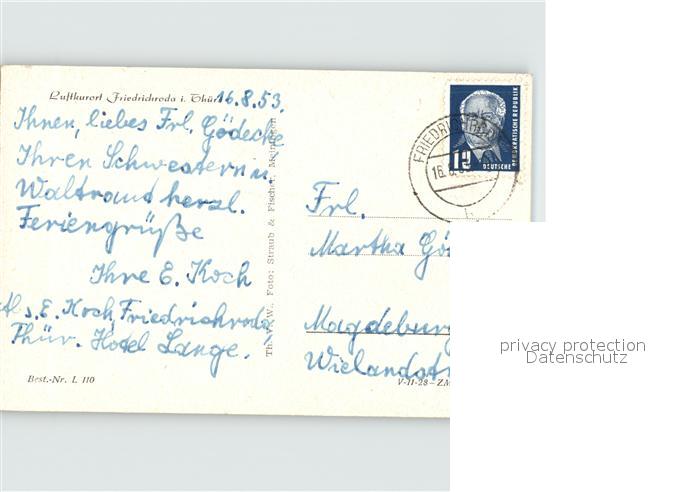 Luftkurort Friedrichroda i. Thür.
16.8.53.
Ihnen, liebes Frl. Gödecke
Ihren Schwestern u.
Waltraud herzl.
Feriengrüße
Ihre E. Koch
s. E. Koch, Friedrichroda
Thür. Hotel Lange.
Best.-Nr. L 110
Foto: Straub & Fischer, Meiningen
DEUTSCHE DEMOKRATISCHE REPUBLIK
12
FRIEDRICHRODA
16.8.
Frl.
Martha Gö
Magdeburg
Wielandstr
V-11-28-ZM
privacy protection
Datenschutz